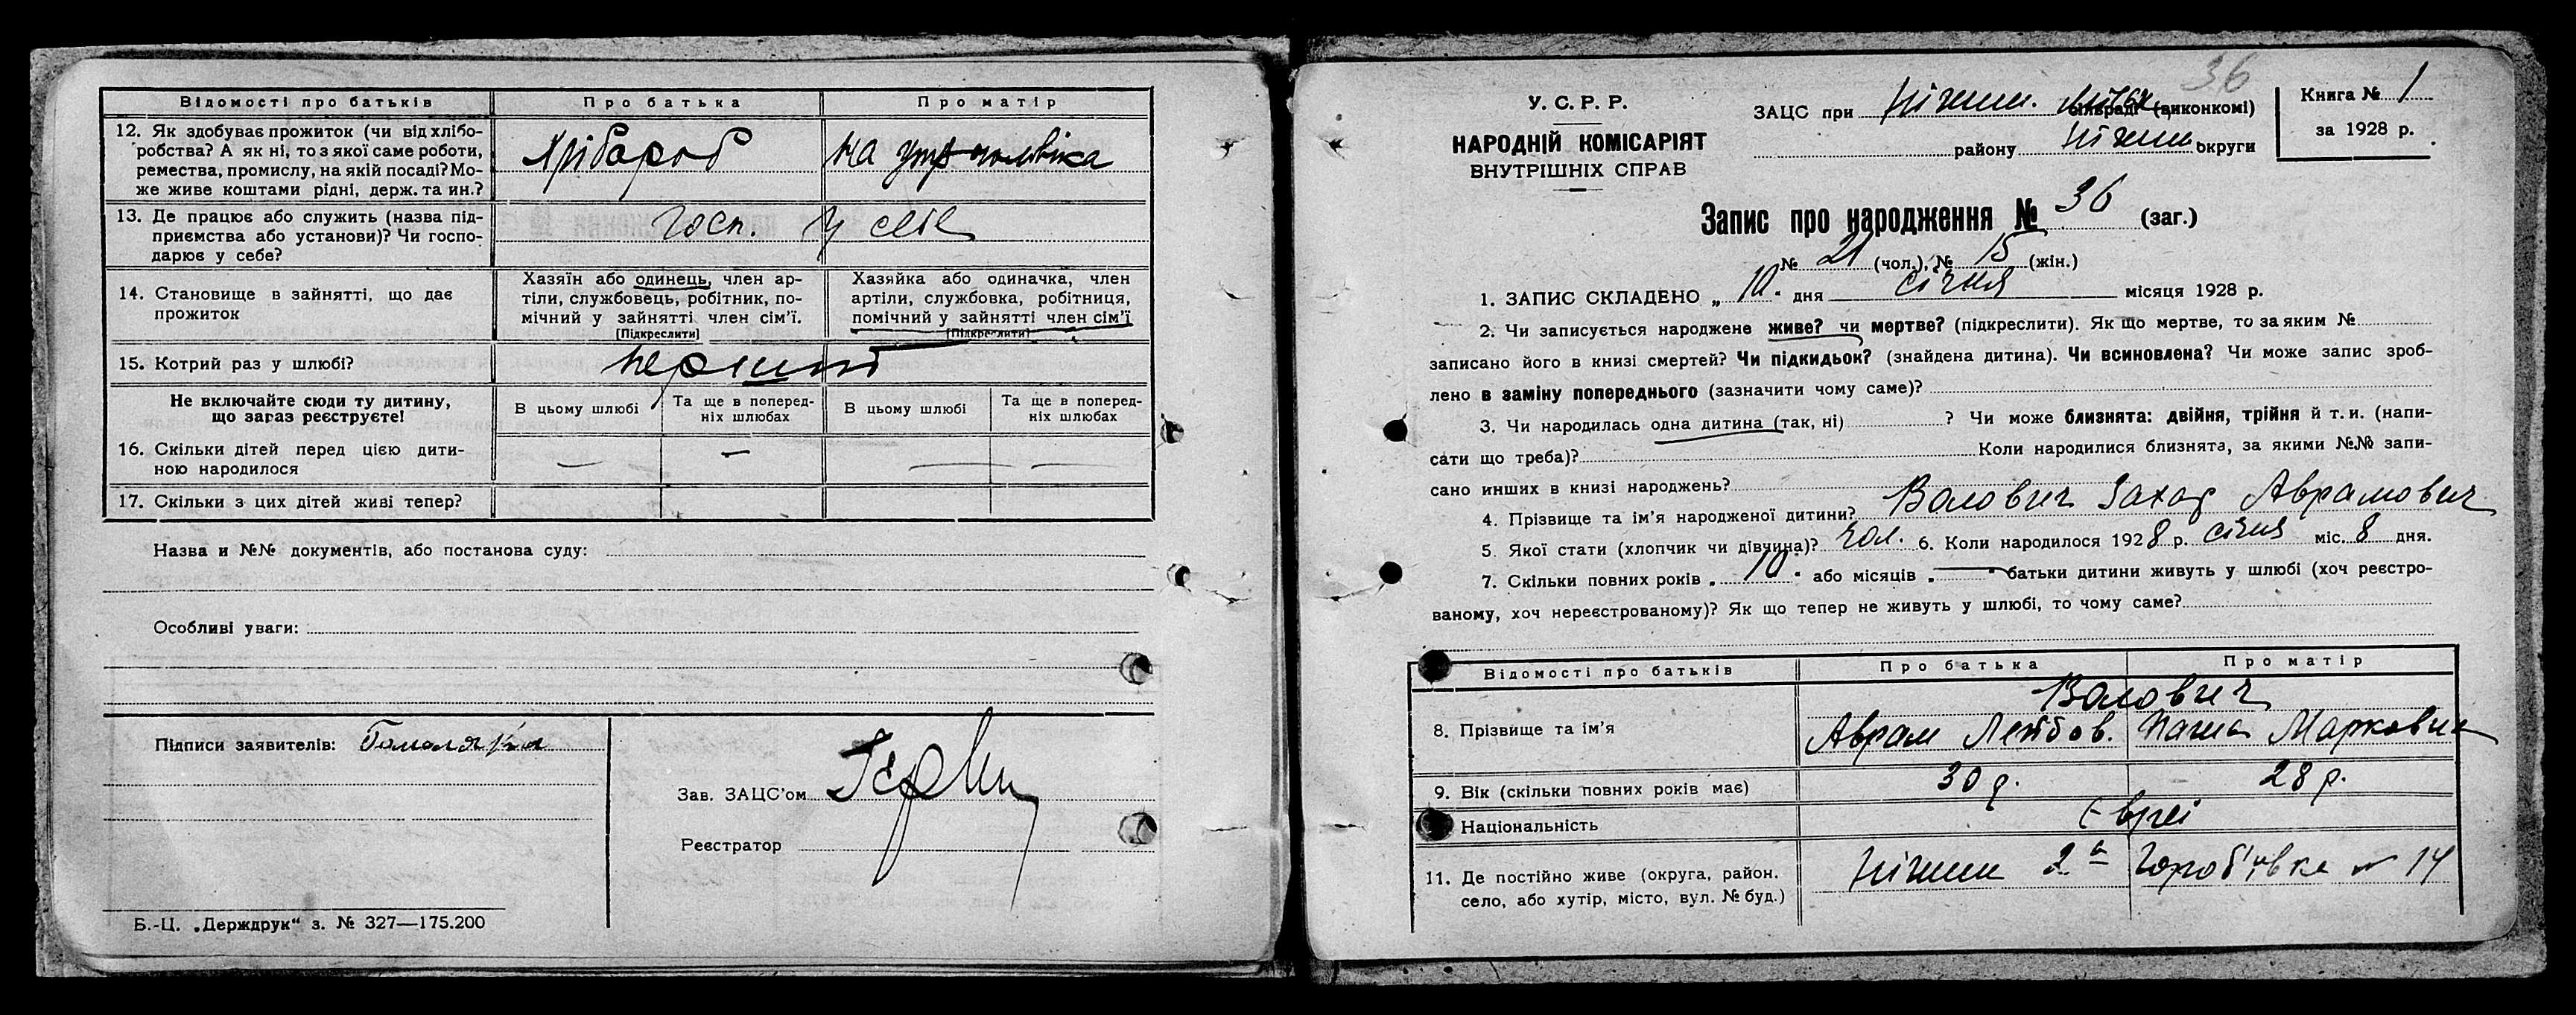 Відомості про батьків Про батька Про матір
12. Як здобуває прожиток (чи від хлібо-
робства? А як ні, то з якої саме роботи,
ремества, промислу, на якій посаді? Мо-
же живе коштами рідні, держ. та ин.?
Хрібароб на утр чоловіка
13. Де працює або служить (назва під-
приємства або установи)? Чи госпо-
дарює у себе?
госп. у себе
14. Становище в зайнятті, що дає
прожиток
Хазяїн або одинець, член ар-
тілі, службовець, робітник, по-
мічний у зайнятті член сім'ї.
[Підкреслити]
Хазяйка або одиначка, член
артілі, службовка, робітниця,
помічний у зайнятті член сім'ї
[Підкреслити]
15. Котрий раз у шлюбі? перший
Не включайте сюди ту дитину,
що зараз реєструєте!
В цьому шлюбі
Та ще в поперед-
ніх шлюбах
В цьому шлюбі
Та ще в поперед-
ніх шлюбах
16. Скільки дітей перед цією дити-
ною народилося
— — — —
17. Скільки з цих дітей живі тепер?
Назва и №№ документів, або постанова суду:
Особливі уваги:
Підписи заявителів:
Зав. ЗАЦС'ом
Реєстратор
Б.-Ц. „Держдрук“ з. № 327—175.200
36
У. С. Р. Р.
НАРОДНІЙ КОМІСАРІЯТ
ВНУТРІШНІХ СПРАВ
ЗАЦС при Ніжин. сільраді (виконкомі)
району Ніжин округи
Книга № 1
за 1928 р.
Запис про народження № 36 (заг.)
№ 21 (чол.), № 15 (жін.)
1. ЗАПИС СКЛАДЕНО „ 10 " дня січня місяця 1928 р.
2. Чи записується народжене живе? чи мертве? (підкреслити). Як що мертве, то за яким №
записано його в книзі смертей? Чи підкидьок? (знайдена дитина). Чи всиновлена? Чи може запис зроб-
лено в заміну попереднього (зазначити чому саме)?
3. Чи народилась одна дитина (так, ні) ? Чи може близнята: двійня, трійня й т. и. (напи-
сати що треба)? Коли народилися близнята, за якими №№ запи-
сано инших в книзі народжень?
4. Прізвище та ім'я народженої дитини? Волович Захар Аврамович
5. Якої стати (хлопчик чи дівчина)? чол. 6. Коли народилося 1928 р. січня міс. 8 дня.
7. Скільки повних років „ 10 " або місяців „ — " батьки дитини живуть у шлюбі (хоч реєстро-
ваному, хоч нереєстрованому)? Як що тепер не живуть у шлюбі, то чому саме?
Відомості про батьків Про батька Про матір
Волович
8. Прізвище та ім'я Аврам Лейбов. Паша Марковна
9. Вік (скільки повних років має) 30 р. 28 р.
Національність Євреї
11. Де постійно живе (округа, район.
село, або хутір, місто, вул. № буд.)
Ніжин 2а Гороб'ївка № 14